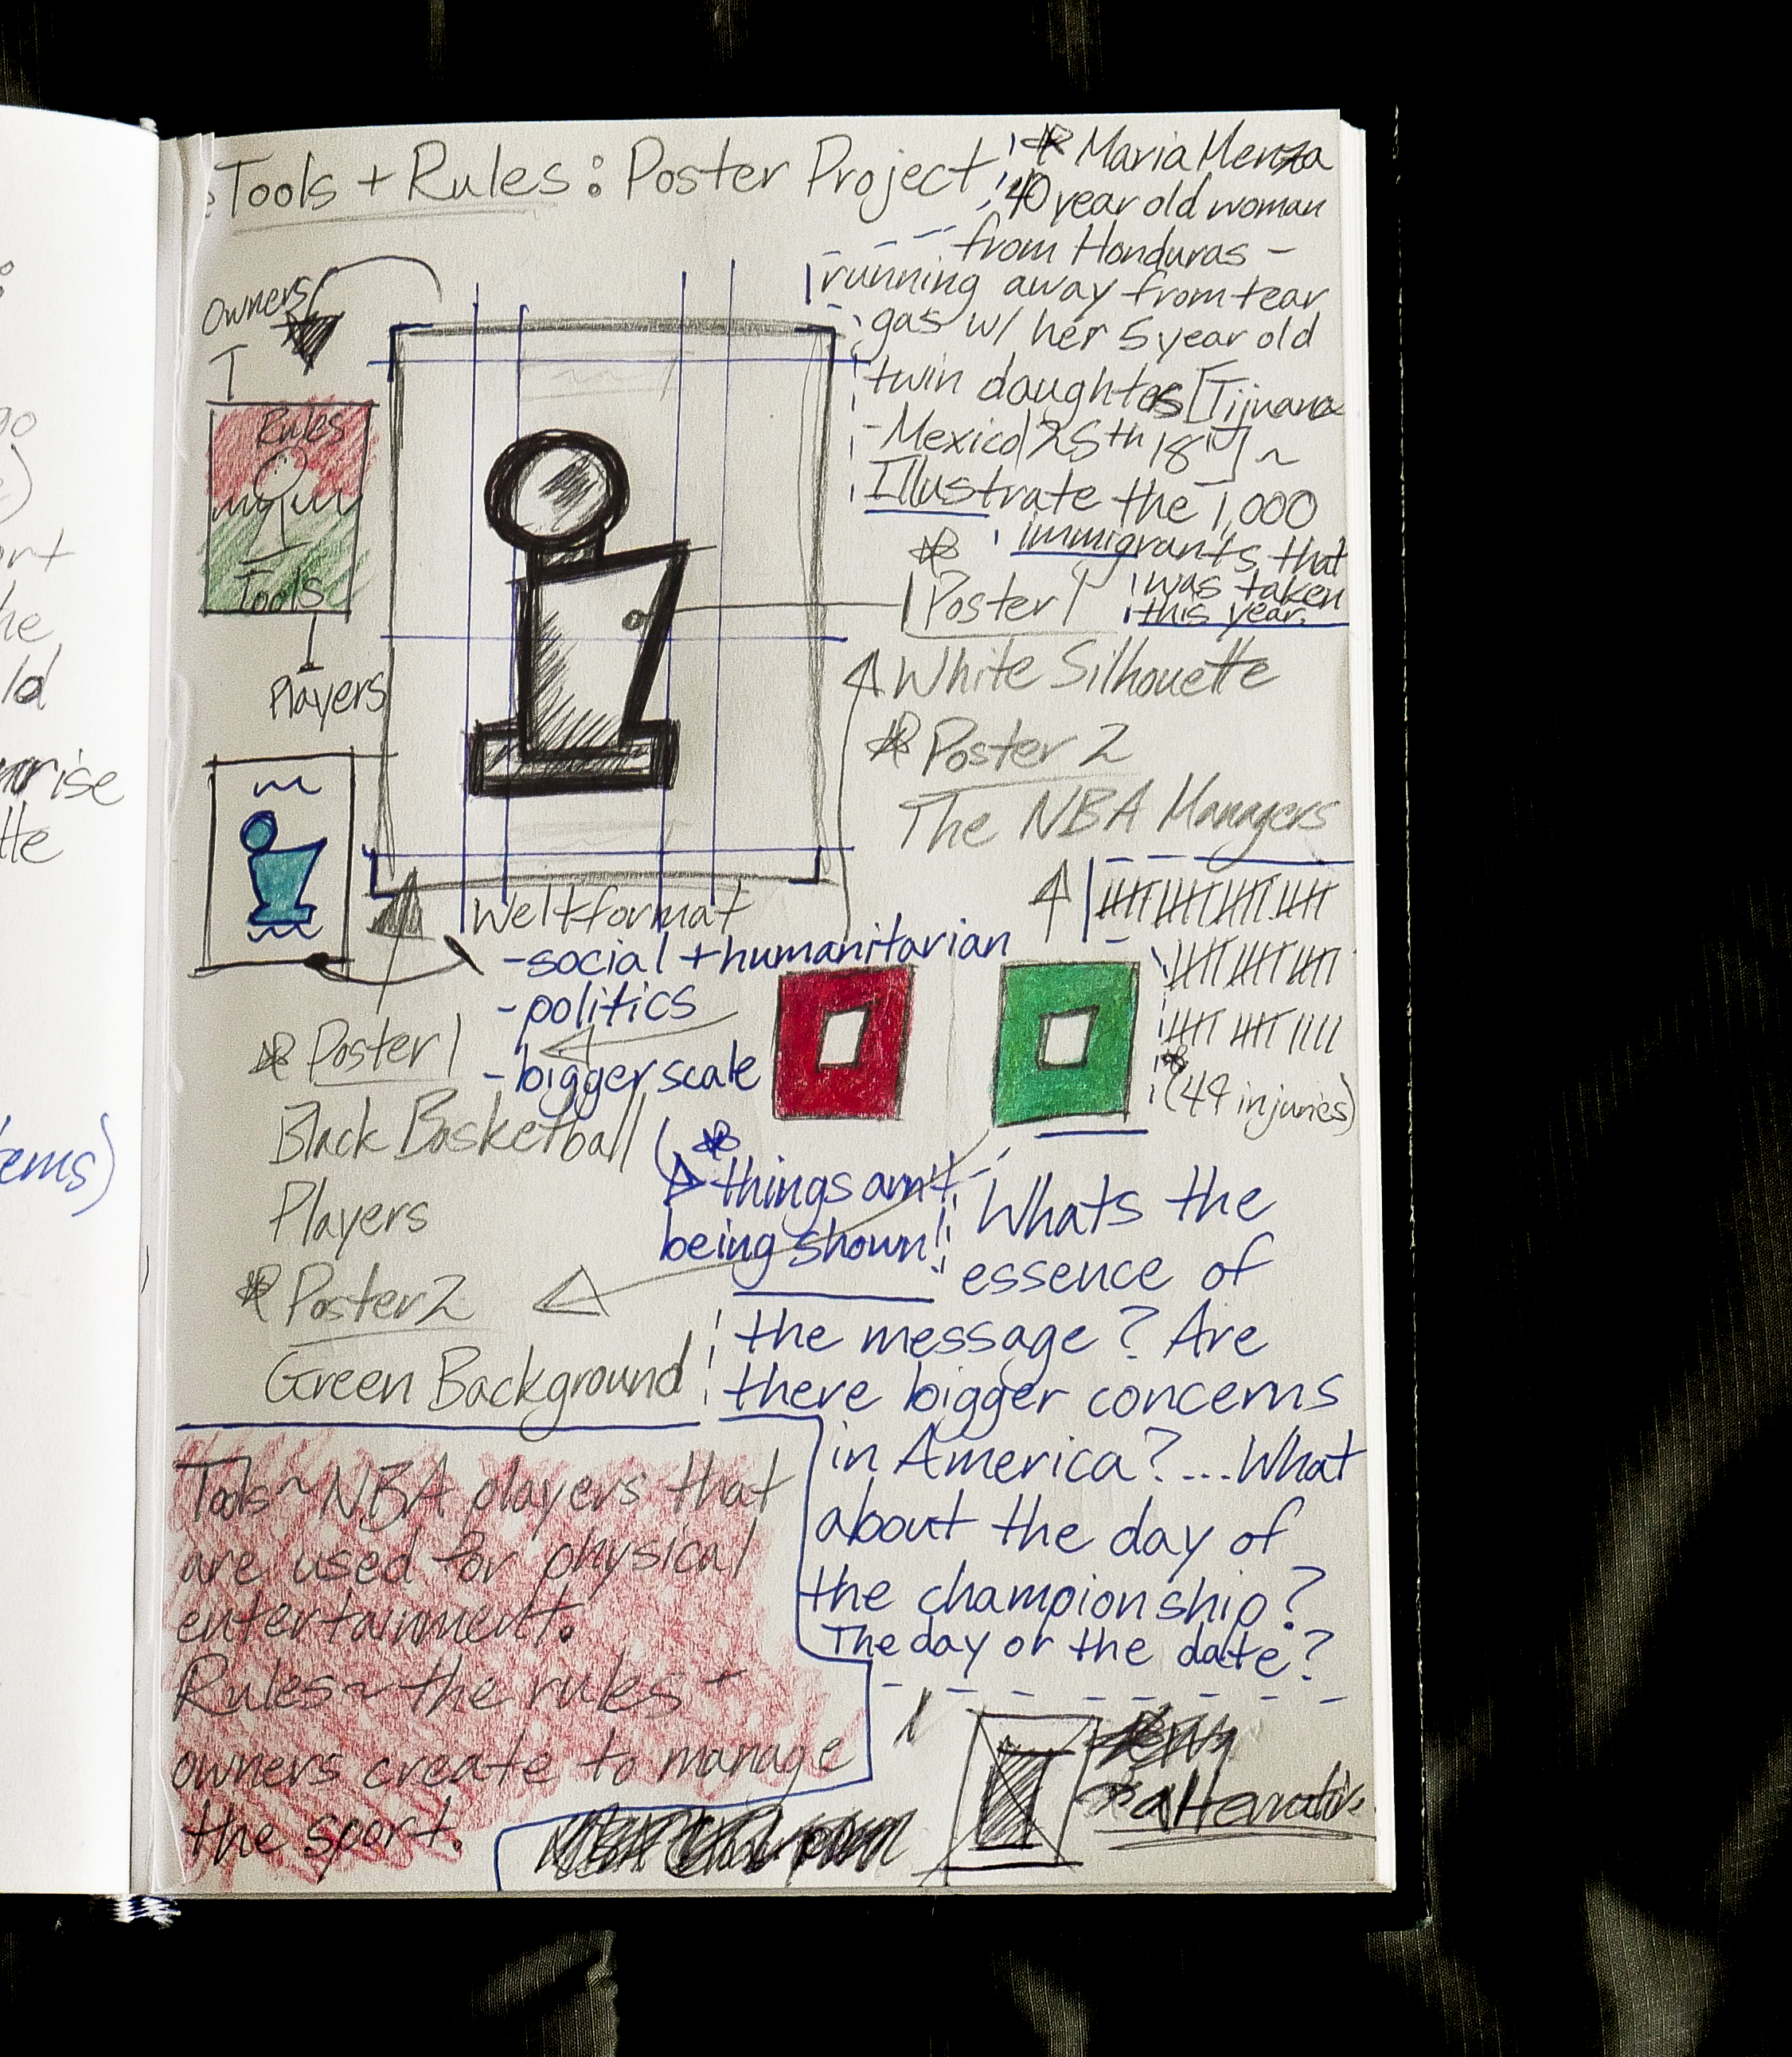 Tools + Rules: Poster Project
Maria Menza
40 year old woman
from Honduras -
running away from tear
gas w/ her 5 year old
twin daughters [Tijuana
-Mexico 25th 18] ~
Illustrate the 1,000
immigrants that
was taken
this year.
Owners
Rules
Tools
Players
Poster 1
White Silhouette
Poster 2
The NBA Managers
(49 injuries)
Weltformat
-social + humanitarian
-politics
-bigger scale
Poster 1
Black Basketball
Players
Poster 2
Green Background
things arnt
being shown!
Whats the
essence of
the message? Are
there bigger concerns
in America?...What
about the day of
the championship?
The day or the date?
Tools ~ NBA players that
are used for physical
entertainment.
Rules ~ the rules
owners create to manage
the sport.
alternative
go
ort
he
ld
rise
tte
ems)